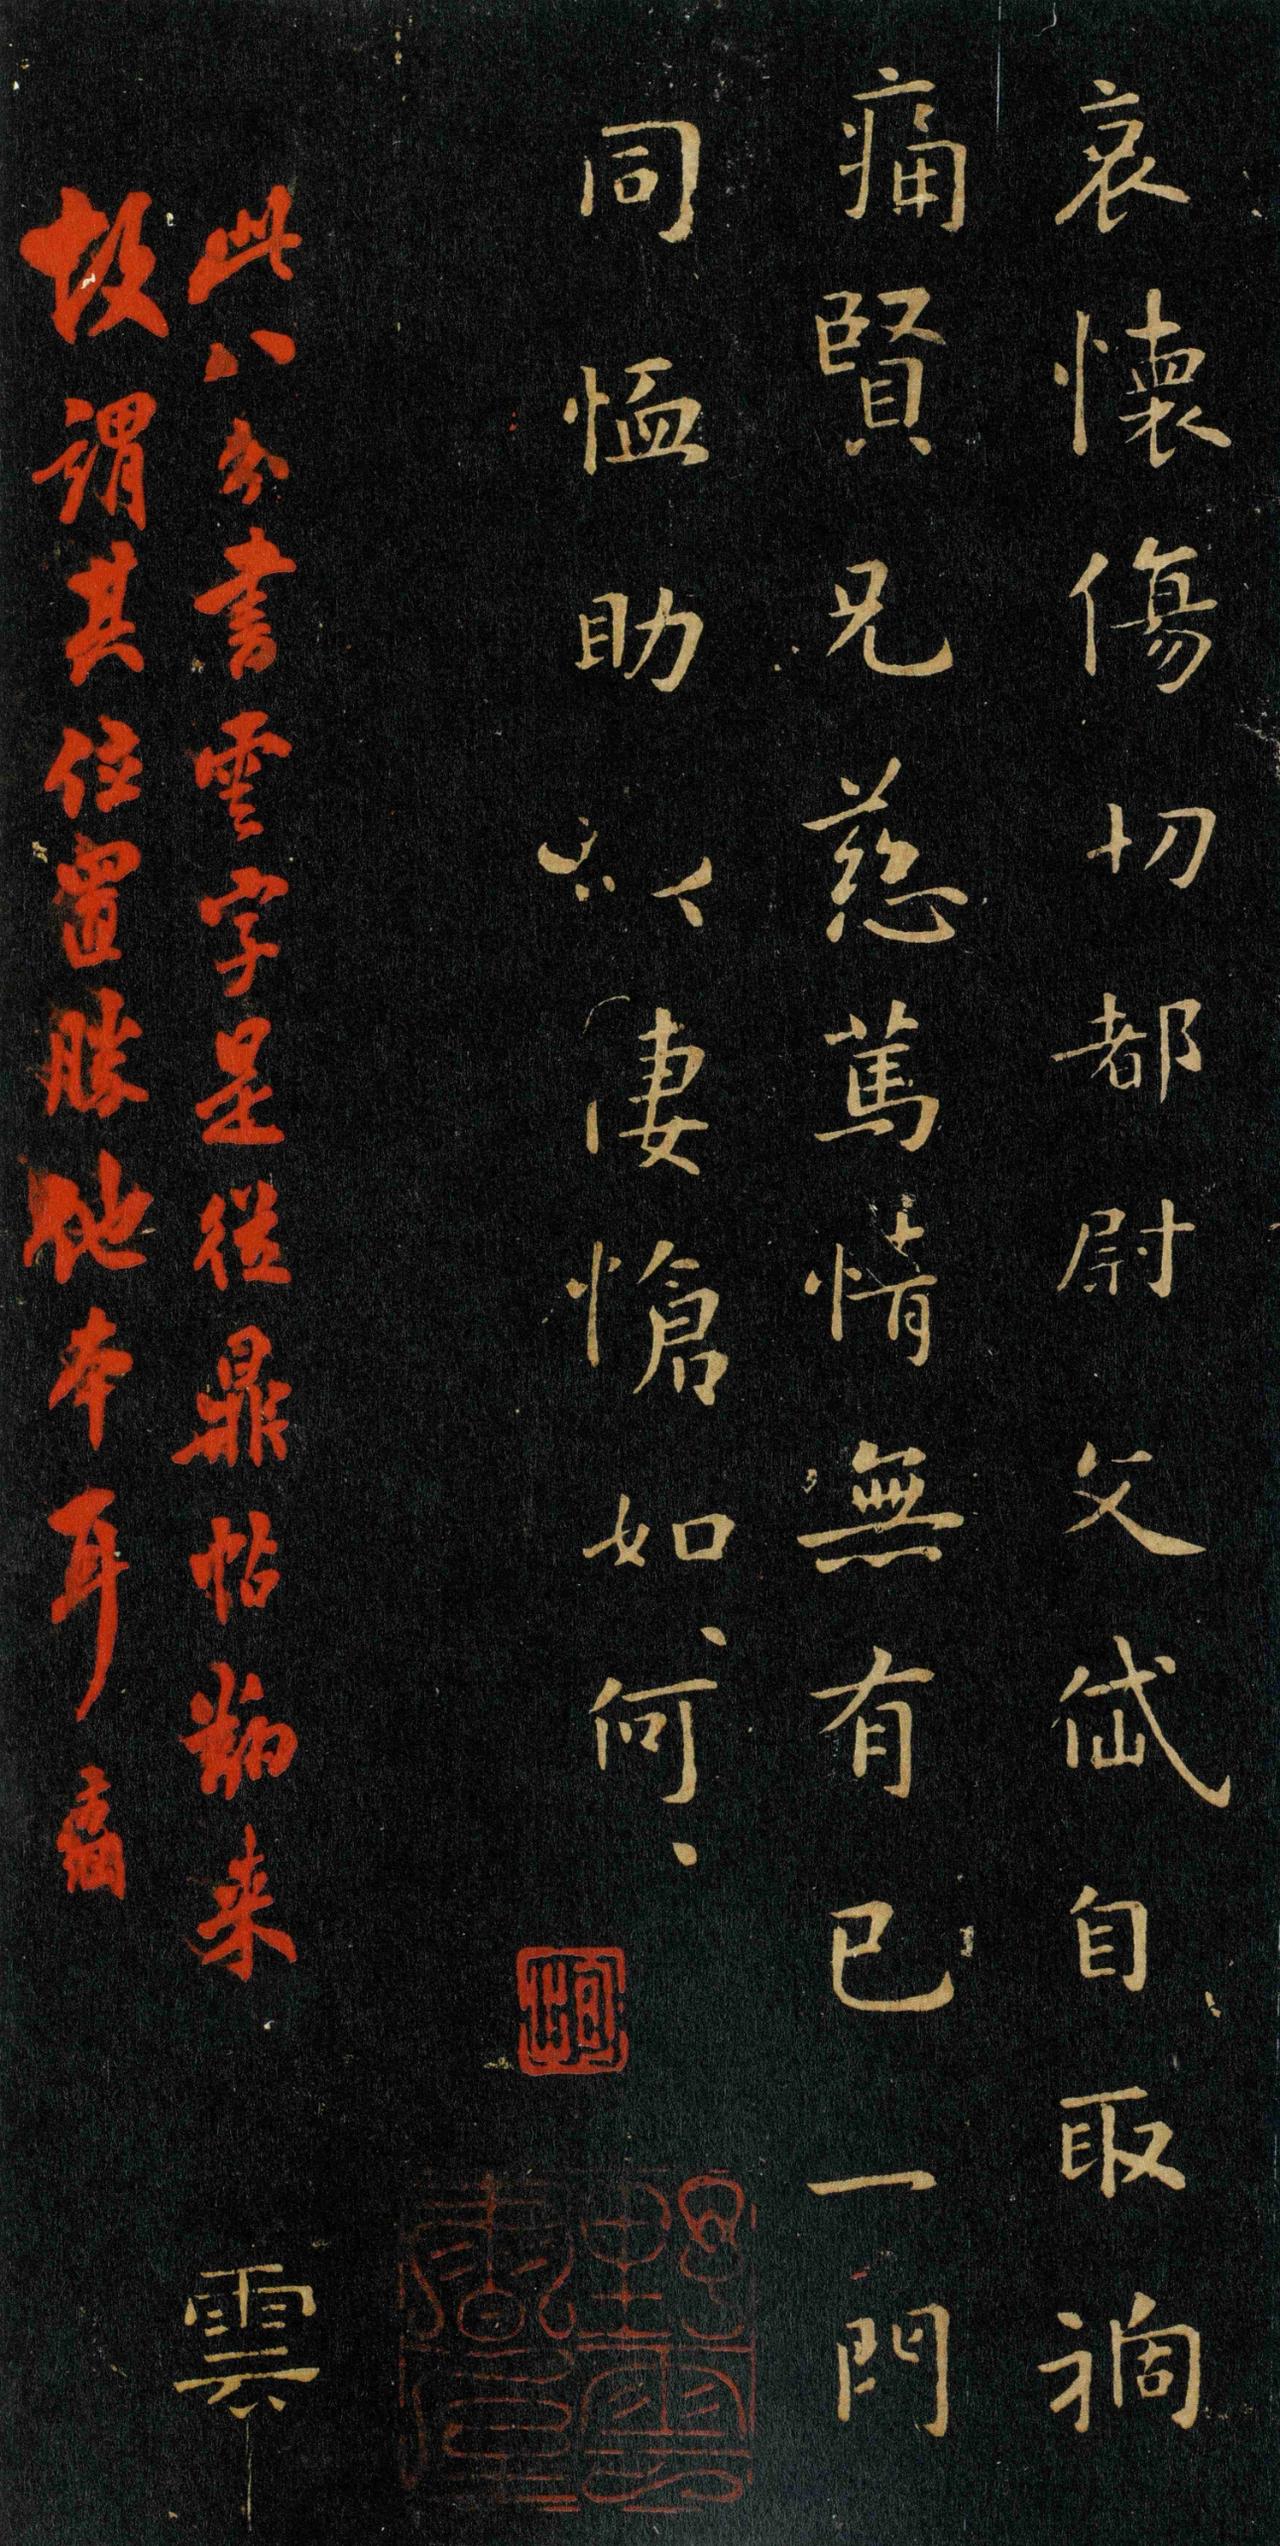 哀懷傷切都尉父岱自取禍
痛賢兄慈篤情無有已一門
同恤助以悽愴如何、、
此八分書雲字是從鼎帖鞠来
雲
故謂其位置勝他本耳